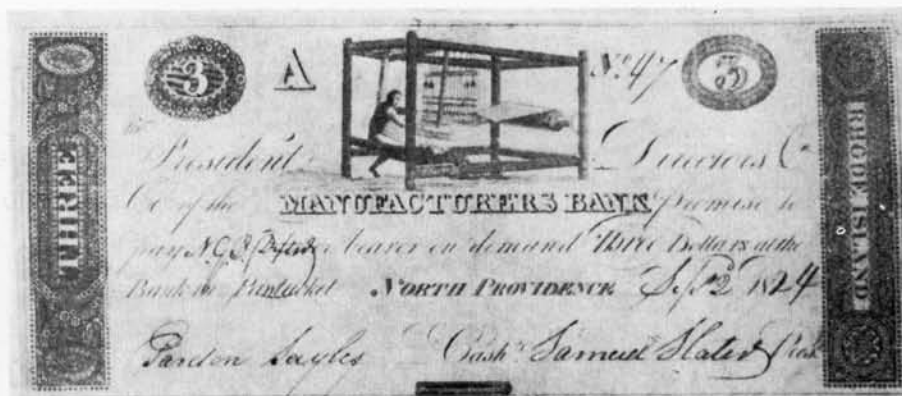 THREE
3 A No. 47 3
President Directors &
Co. of the MANUFACTURERS BANK Promise to
pay or bearer on demand Three Dollars at the
Bank in Pawtucket NORTH PROVIDENCE Sep 2 1824
Pardon Sayles Cash Samuel Slater Pres
RHODE ISLAND